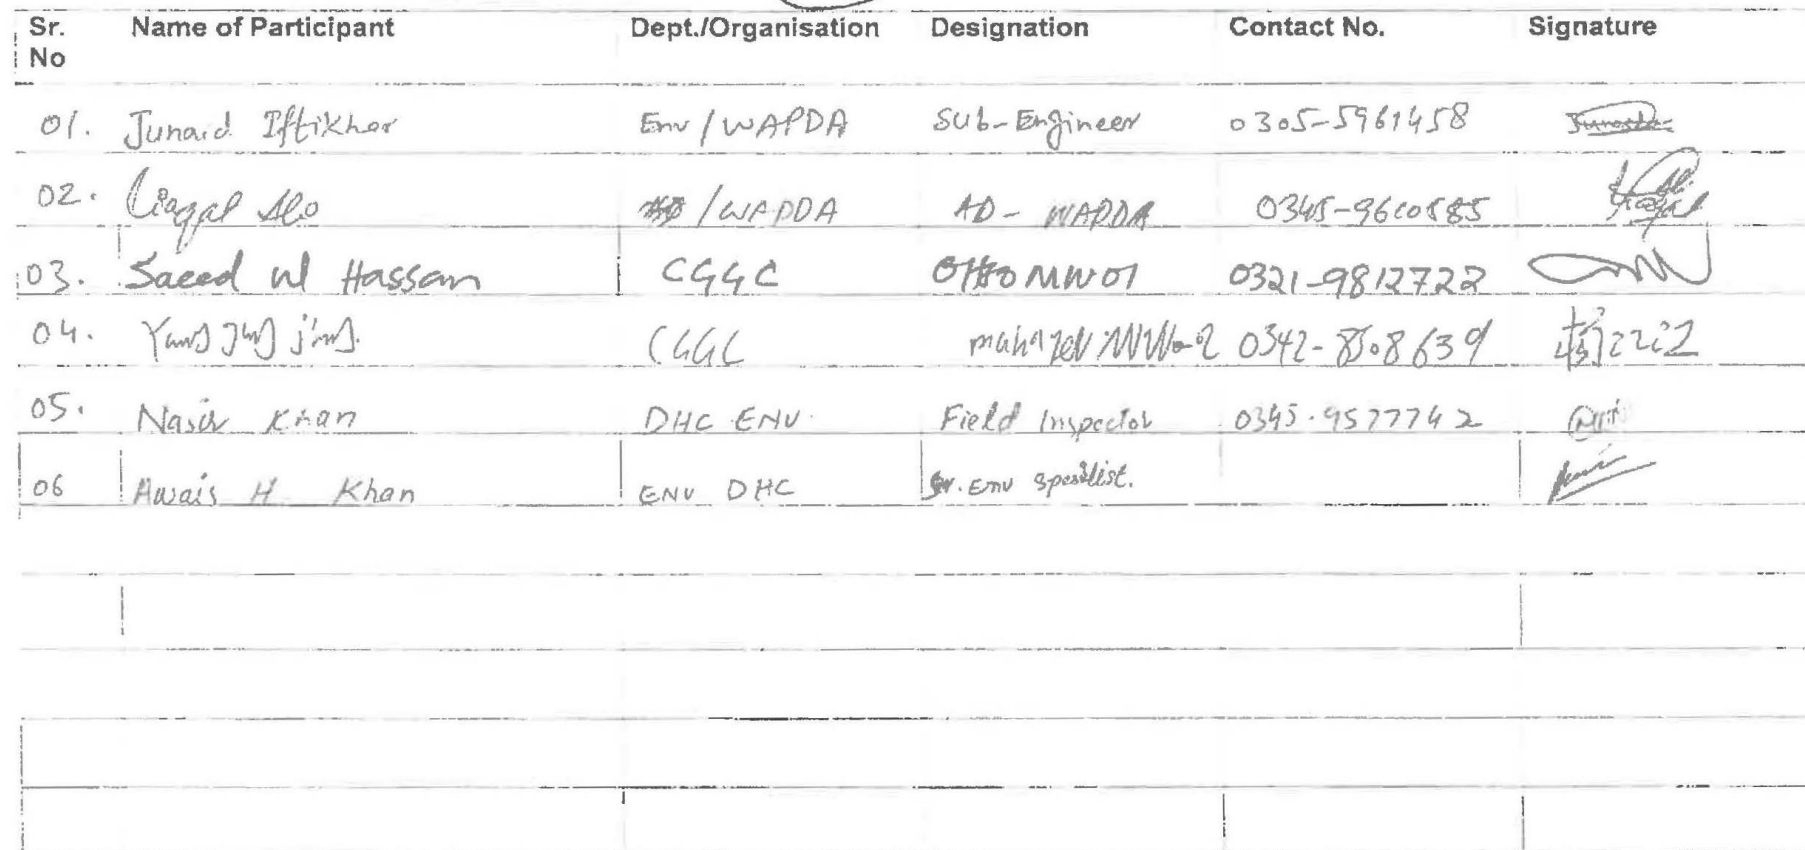 Sr. No Name of Participant Dept./Organisation Designation Contact No. Signature
01. Junaid Iftikhar Env/WAPDA Sub-Engineer 0305-5961458
02. Liaqat Ali /WAPDA AD- WAPDA 0345-9610585
03. Saeed ul Hassan CGGC MW01 0321-9812722
04. Yang CGGC 0342-8508639
05. Nasir Khan DHC ENV. Field Inspector 0345-9577742
06 Awais H Khan ENV DHC Sr. Env specialist.